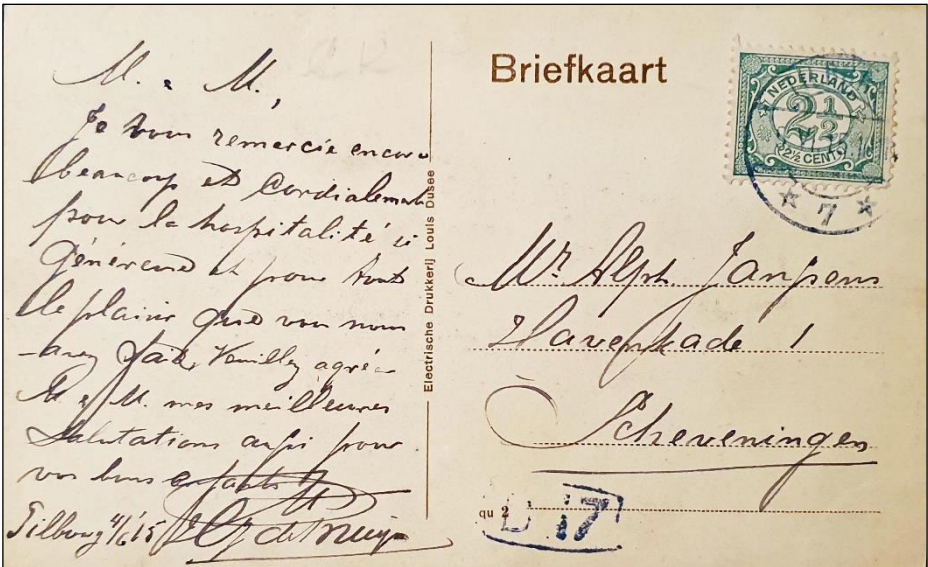 M. e M.,
Je vous remercie encore
beaucoup et Cordialement
pour la hospitalité si
généreuse et pour tout
le plaisir que vous nous
avez fait. Veuillez agréer
M. e M. mes meilleures
Salutations aussi pour
vos bons enfants
Tilbourg 4/6 15
Electrische Drukkerij Louis Dusée
Briefkaart
NEDERLAND
2½
2½ CENT
7
Mr. Alph. Janssens
Havenkade 1
Scheveningen
qu 2
17